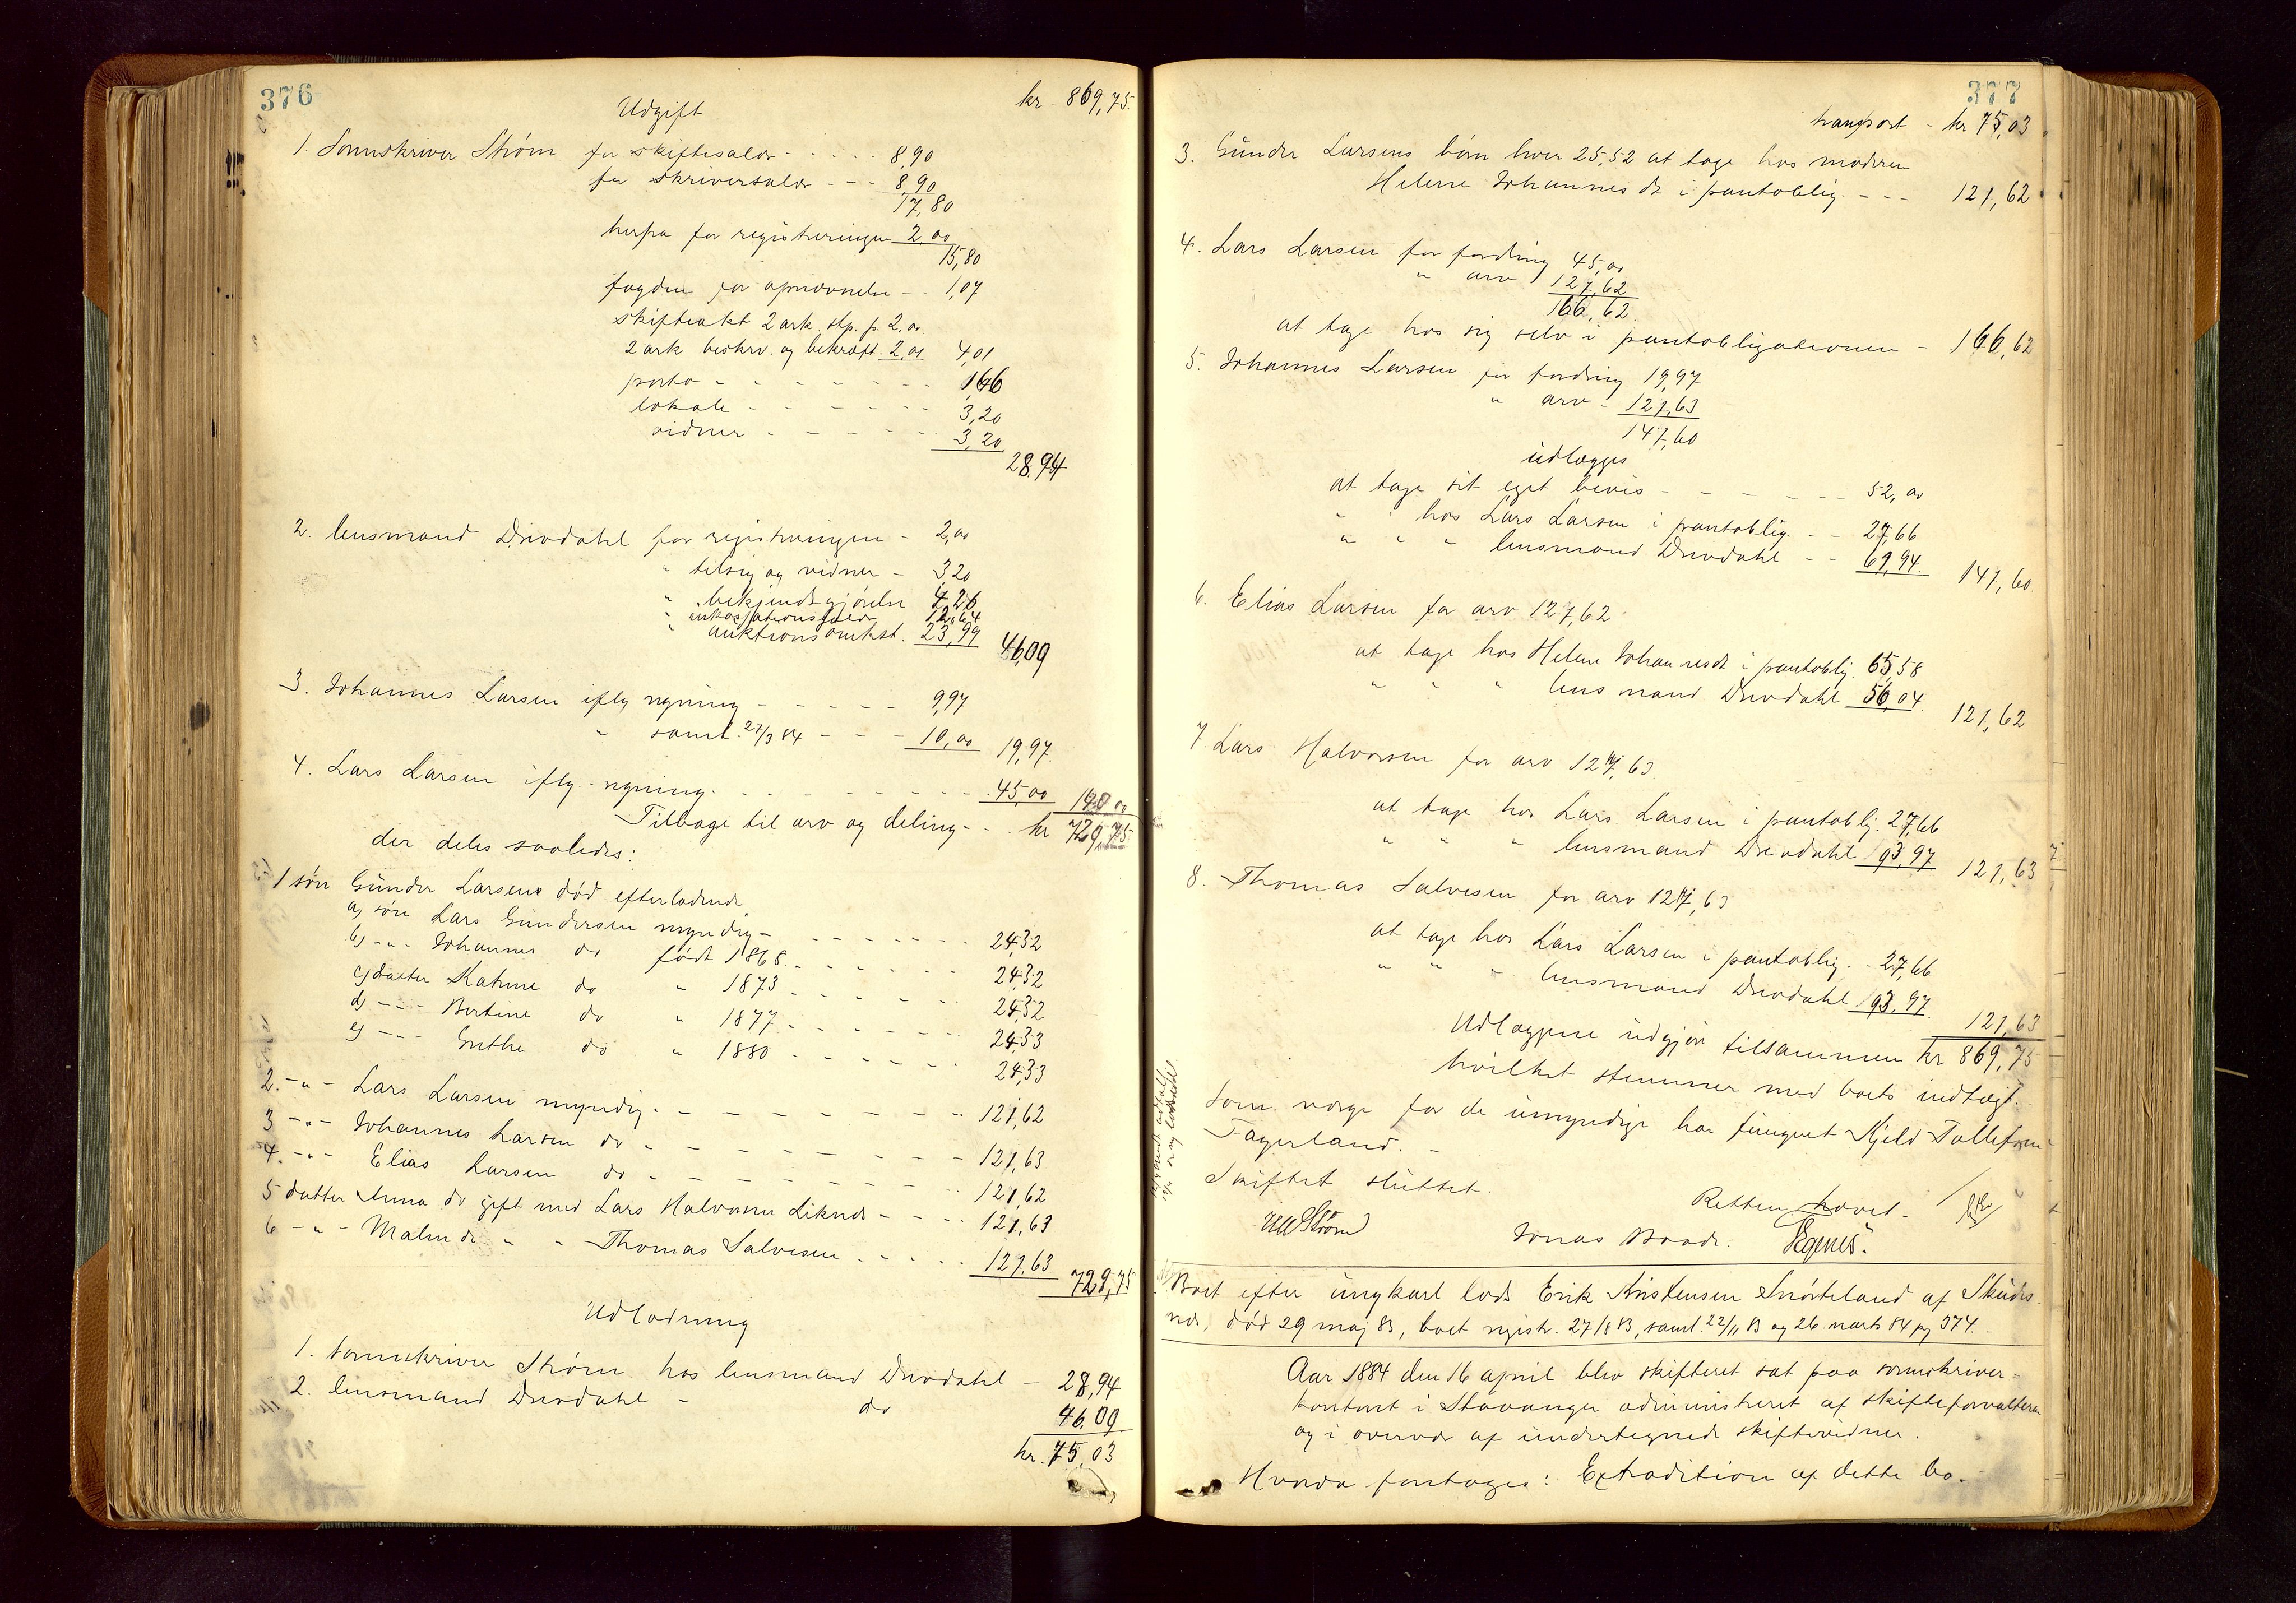 376
Udgift kr 869,75
1. Sorenskriver Strøm for skiftesalær - - - - 8,90
for skriversalær - - - 8,90
17,80
herfra for registreringen 2,00
15,80
fogden for opnævnelse - - 1,07
skifteakt 2 ark. stp. p. 2,00
2 ark beskrv. og bekræft. 2,01 4,01
porto - - - - - - 1,66
lokale - - - - - - 3,20
vidner - - - - - - 3,20
28,94
2. lensmand Drivdahl for registreringen - 2,00
" tilsyn og vidner - 3,20
" bekjendtgjørelse 4,26
" inkassationssalær 12,64
" auktionsomkst. 23,99 46,09
3. Johannes Larsen iflg regning - - - - - 9,97
" saml. 27/3 84 - - - 10,00 19,97
4. Lars Larsen iflg. regning. - - - - - - - - - 45,00 140,00
Tilbage til arv og deling - - kr 729,75
der deles saaledes:
1 søn Gunder Larsen død efterladende
a) søn Lars Gundersen myndig - - - - - - - 24,32
b) - " - Johannes do født 1868 - - - - - - 24,32
c) datter Katrine do " 1873 - - - - - - 24,32
d) - " - Bertine do " 1877 - - - - - - 24,33
e) - " - Guthe do " 1880 - - - - - - 24,33
2. - " - Lars Larsen myndig - - - - - - - - 121,62
3 - " - Johannes Larsen do - - - - - - - - 121,63
4. - " - Elias Larsen do - - - - - - - - 121,62
5 datter Anna do gift med Lars Halvorsen Liknes - - - - 121,63
6 - " - Malin do " " Thomas Salvesen - - - - 121,63 729,75
Udlodning
1. Sorenskriver Strøm hos lensmand Drivdahl - 28,94
2. lensmand Drivdahl - do 46,09
kr. 75,03
377
transport - kr 75,03
3. Gunder Larsens børn hver 25,52 at tage hos moderen
Helene Johannesdt i pantoblig. - - - 121,62
4. Lars Larsen for fordring 45,00
" arv 121,62
166,62
at tage hos sig selv i pantobligationen - 166,62
5. Johannes Larsen for fordring 19,97
" arv - 121,63
141,60
udlægges
at tage sit eget bevis - - - - - - 52,00
" " hos Lars Larsen i pantoblig. - - 27,66
" " " lensmand Drivdahl - - 61,94 141,60
6. Elias Larsen for arv 121,62
at tage hos Helene Johannesdt i pantoblig. 65,58
" " " lensmand Drivdahl 56,04 121,62
7. Lars Halvorsen for arv 121,63
at tage hos Lars Larsen i pantoblig. 27,66
" " " lensmand Drivdahl 93,97 121,63
8. Thomas Salvesen for arv 121,63
at tage hos Lars Larsen i pantoblig. - 27,66
" " " lensmand Drivdahl 93,97 121,63
Udlæggene udgjør tilsammen kr 869,75
hvilket stemmer med boets indtægt.
Som værge for de umyndige har fungeret Kjeld Tollefsen
Fagerland. -
Skiftet sluttet.
Retten hævet -
Strøm Jonas Egenes.
Boet efter ungkarl lods Erik Kristensen Snørteland af Skudes
nes, død 29 maj 83, boet registr. 27/8 83, saml. 22/11 83 og 26 marts 84 pg 374. -
Aar 1884 den 16 april blev skifteret sat paa sorenskriver-
kontoret i Stavanger administreret af skifteforvalteren
og i overvær af undertegnede skiftevidner.
Hvorda foretoges: Extradition af dette bo.